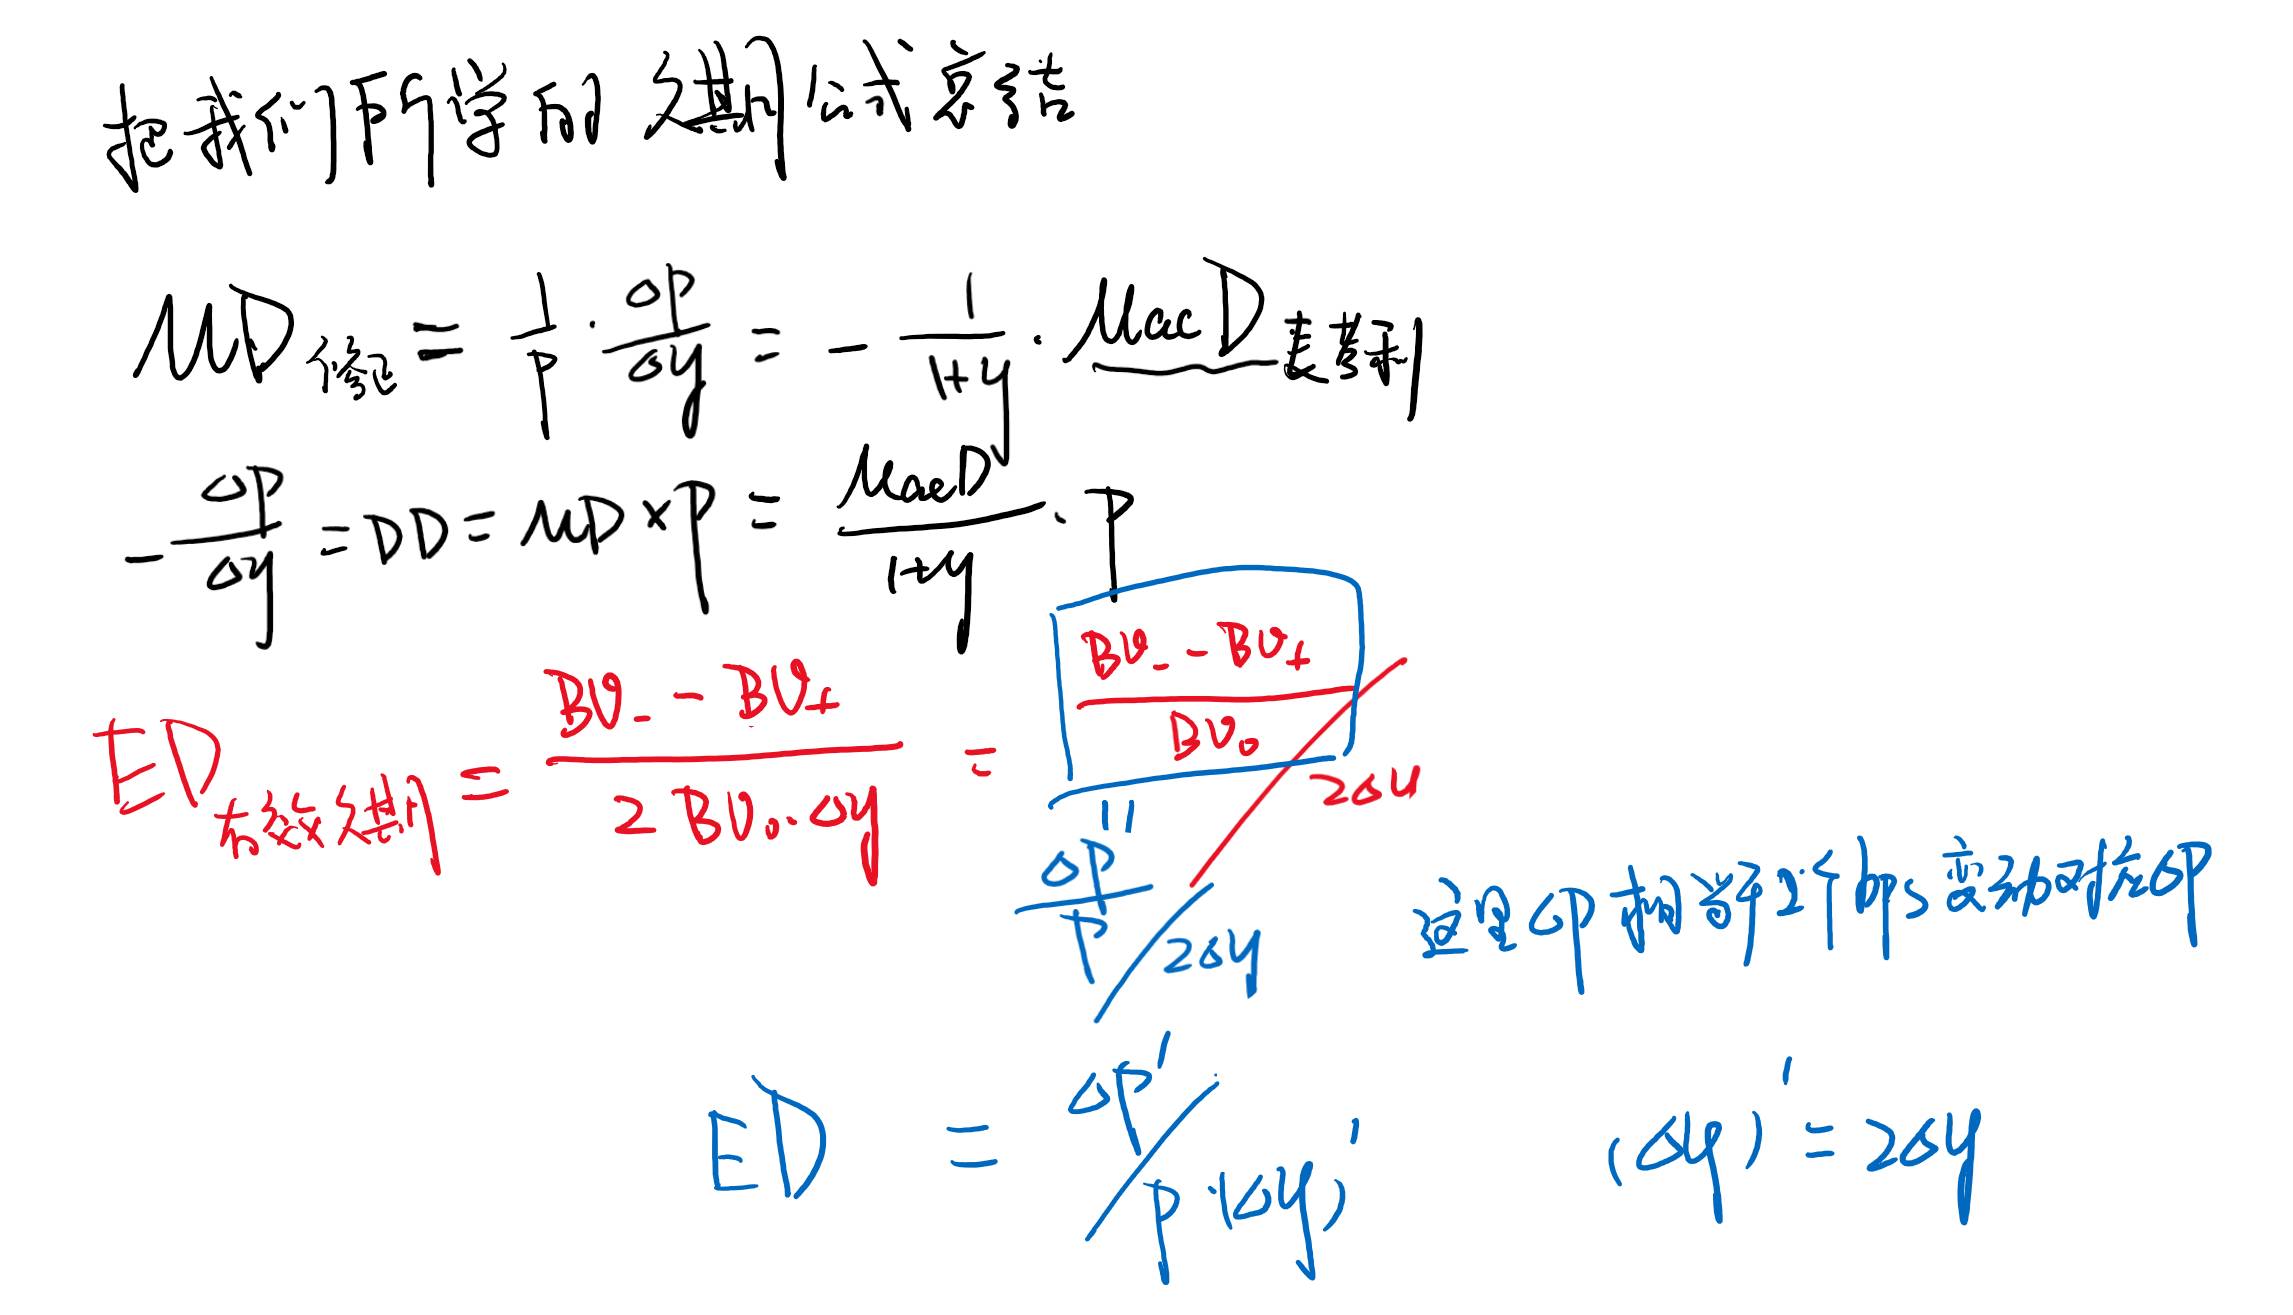 把我们所学的久期公式总结
MD修正 = 1/P · ΔP/Δy = - 1/(1+y) · MacD麦考利
- ΔP/Δy = DD = MD × P = MacD/(1+y) · P
ED有效久期 = (BV₋ - BV₊)/(2 BV₀·Δy) = (BV₋ - BV₊)/BV₀ / 2Δy
"
ΔP/P / 2Δy
这里ΔP相当于2个bps变动对应ΔP
ED = ΔP' / P·(Δy)'
(Δy)' = 2Δy